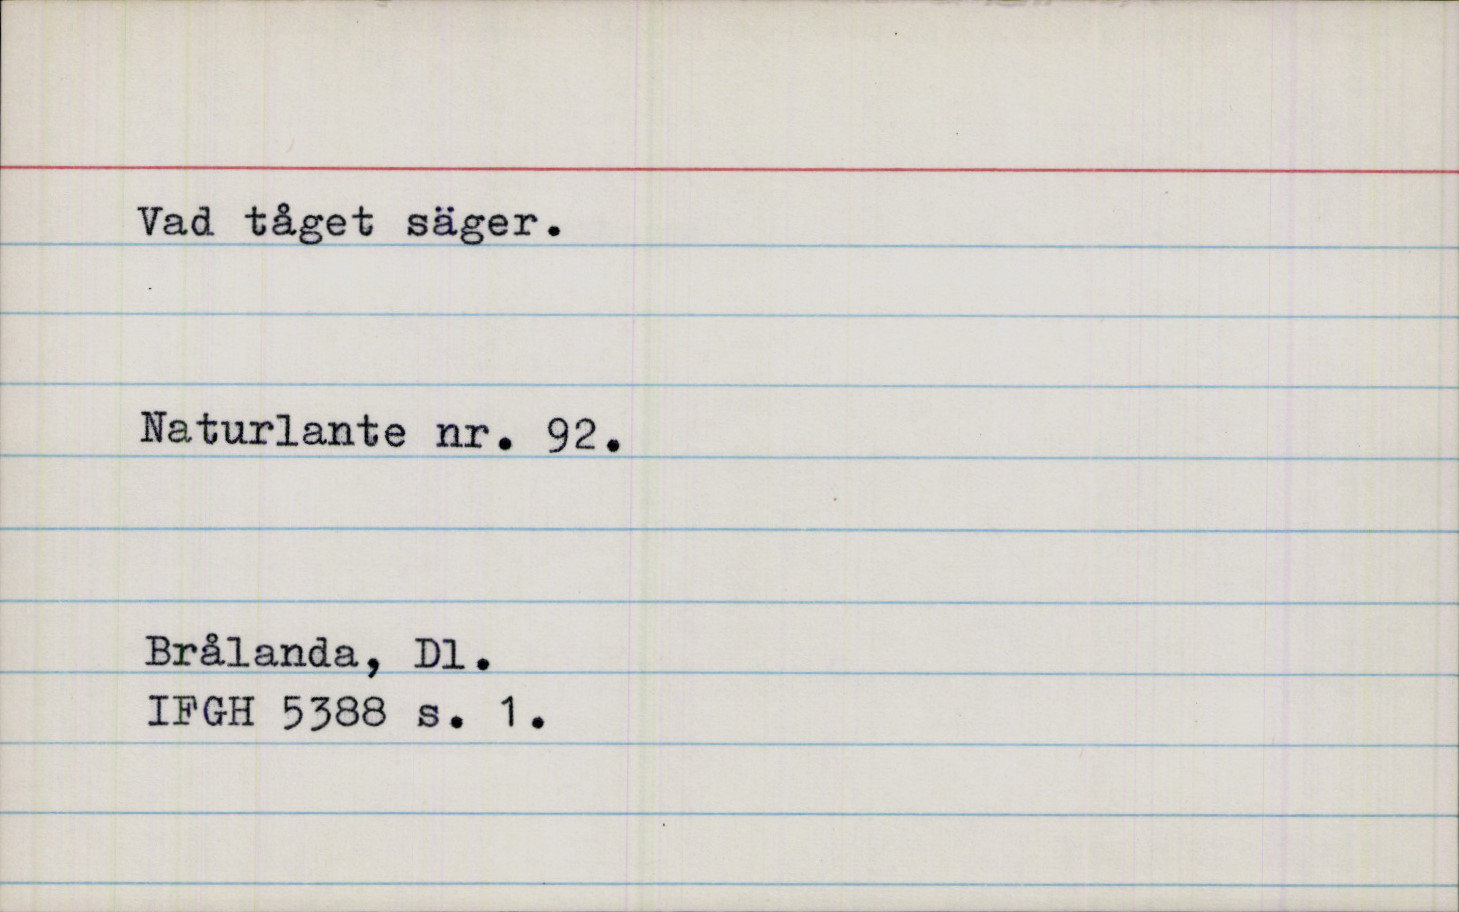 Vad tåget säger.
Naturlante nr. 92.
Brålanda, Dl.
IFGH 5388 s. 1.